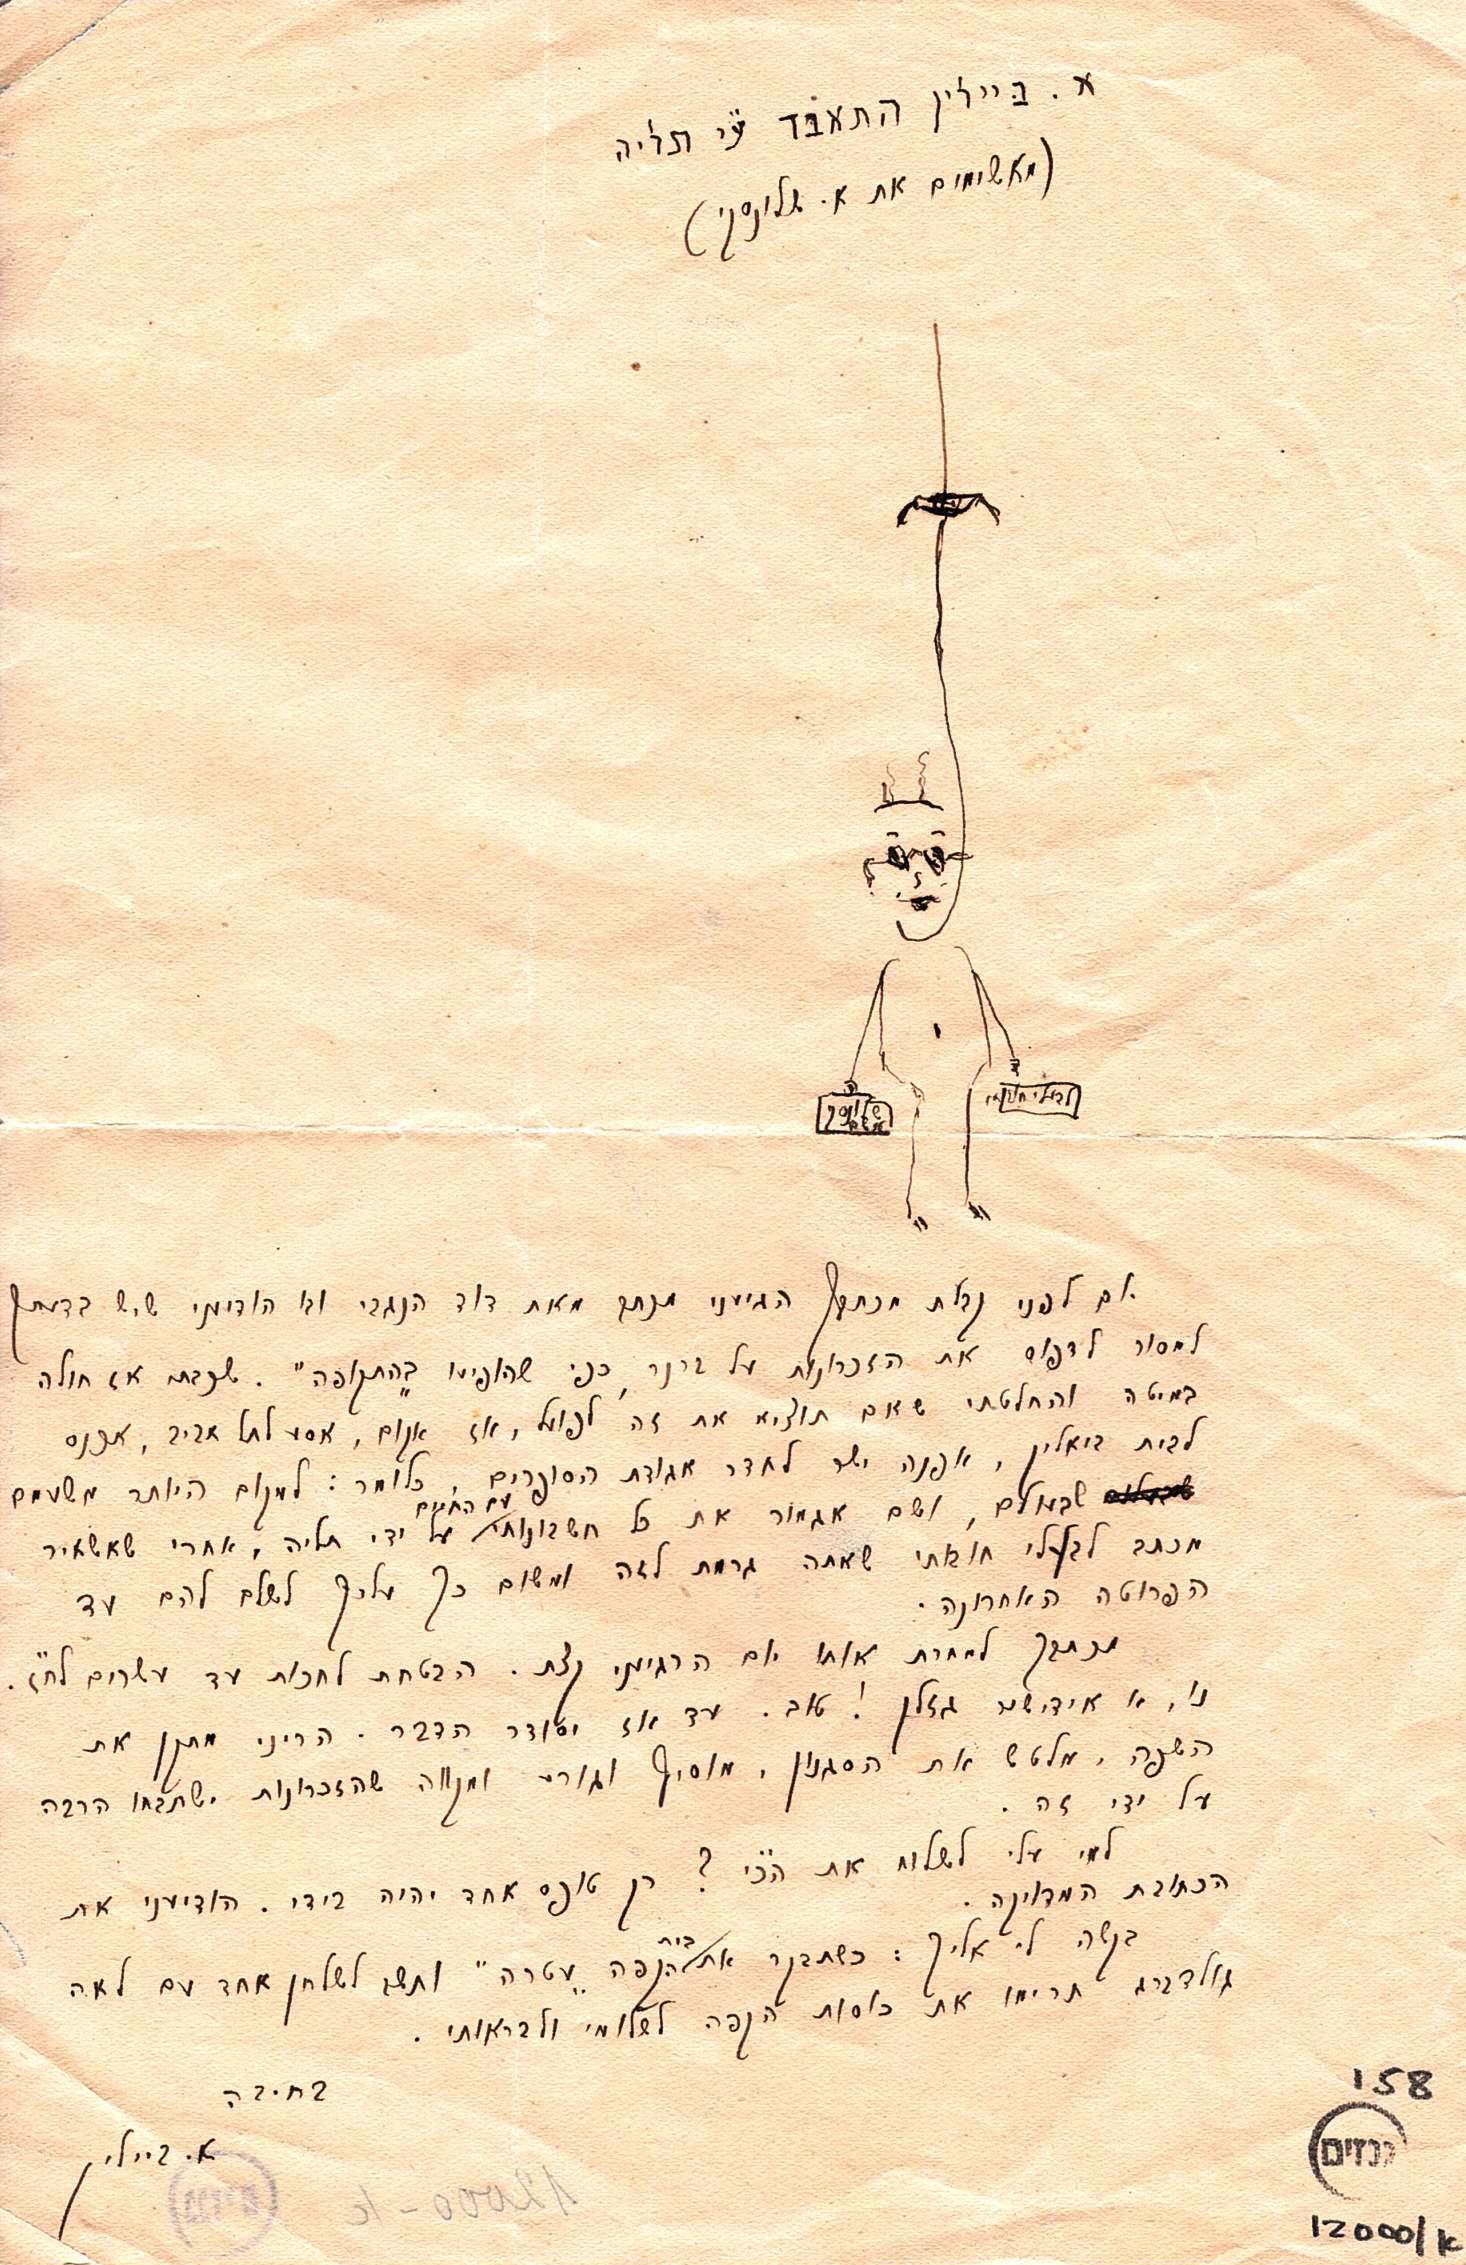 א. ביילין התאבד ע״י תליה
(מאשימים את א. שלונסקי)
שלונסקי
אשם
לבעלי חובותי
יום לפני קבלת מכתבך הגיעני מכתב מאת דוד הנגבי ובו הודיעני שיש בדעתך
למסור לדפוס את הזכרונות על ברנר, כפי שהופיעו ב„התקופה״. שכבתי אז חולה
במיטה והחלטתי שאם תוציא את זה לפועל, אז אקום, אסע לתל אביב, אכנס
לבית ביאליק, אפנה ישר לחדר אגודת הסופרים, כלומר: למקום היותר משעמם
שבעולם, ושם אגמור את כל חשבונותי עם החיים על ידי תליה, אחרי שאשאיר
מכתב לבעלי חובותי שאתה גרמת לזה ומשום כך עליך לשלם להם עד
הפרוטה האחרונה.
מכתבך למחרת אותו יום הרגיעני קצת. הבטחת לחכות עד עשרים לח״ז.
נו, א אידישער גזלן! טוב. עד אז יסודר הדבר. הריני מתקן את
השפה, מלטש את הסגנון, מוסיף וגורע ומקווה שהזכרונות ישתבחו הרבה
על ידי זה.
למי עלי לשלוח את הכ״י? רק טופס אחד יהיה בידי. הודיעני את
הכתובת המדויקת.
בקשה לי אליך: כשתבקר את בית הקפה „עטרה״ ותשב לשלחן אחד עם לאה
גולדברג תרימו את כוסות הקפה לשלומי ולבראותי.
בחיבה
א. ביילין
158
גנזים
12000/א
12000-א
גנזים